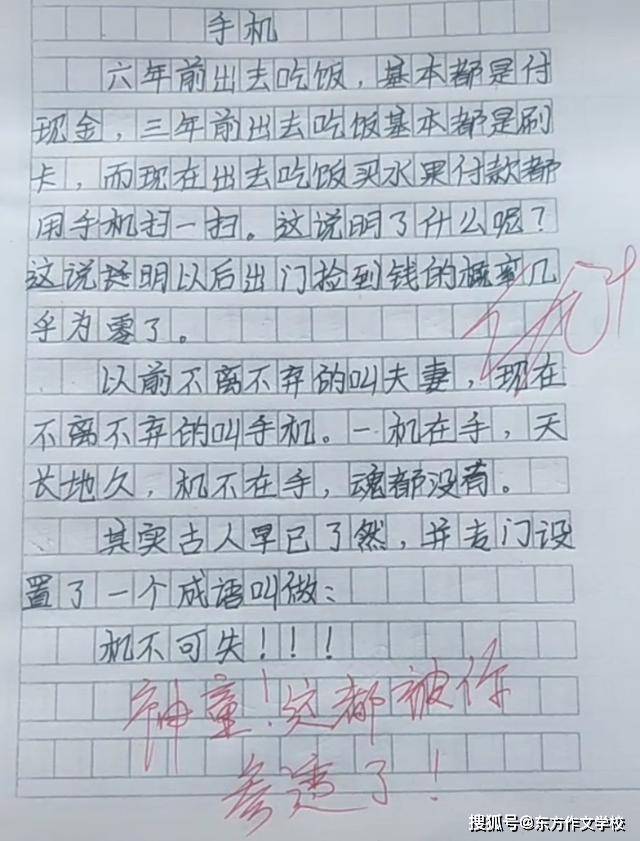 手机
六年前出去吃饭，基本都是付
现金，三年前出去吃饭基本都是刷
卡，而现在出去吃饭买水果付款都
用手机扫一扫。这说明了什么呢？
这说明以后出门捡到钱的概率几
乎为零了。
以前不离不弃的叫夫妻，现在
不离不弃的叫手机。一机在手，天
长地久，机不在手，魂都没有。
其实古人早已了然，并专门设
置了一个成语叫做：
机不可失！！！
神童！这都被你
参透了！
搜狐号@东方作文学校